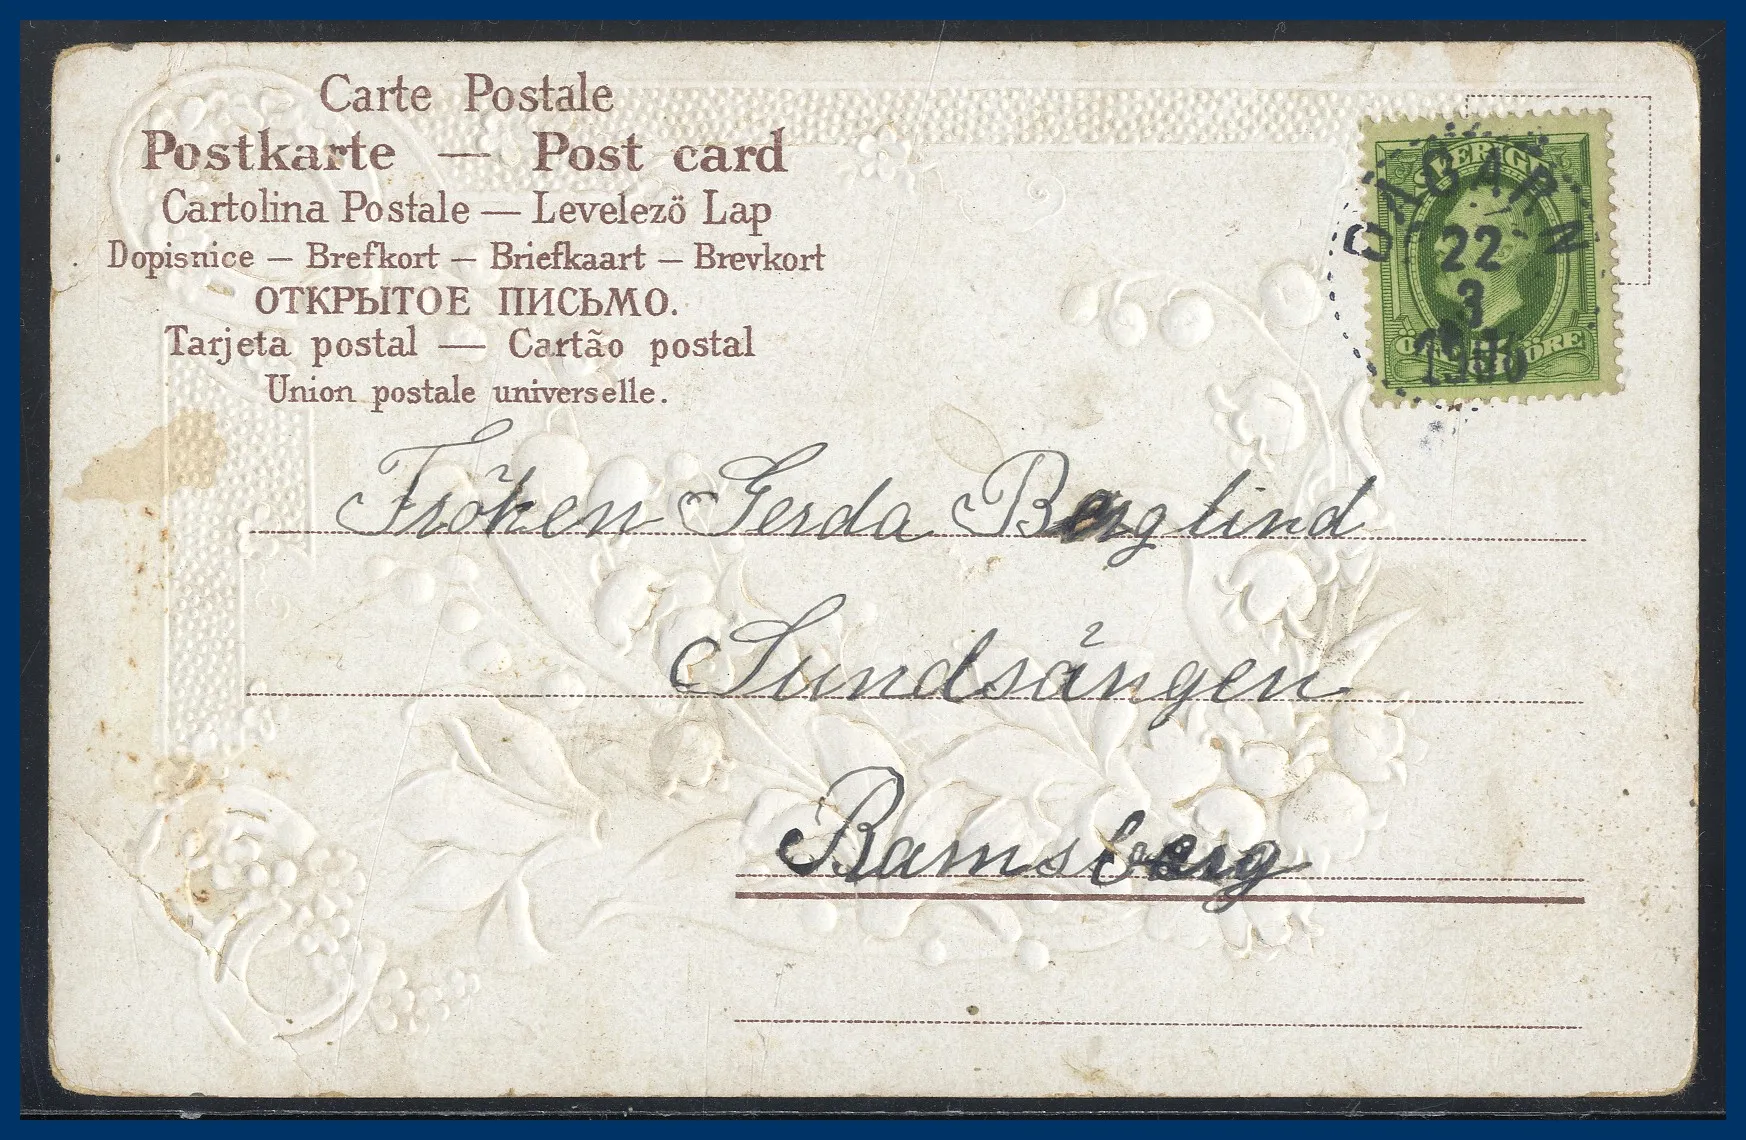 Carte Postale
Postkarte — Post card
Cartolina Postale — Levelező Lap
Dopisnice — Brefkort — Briefkaart — Brevkort
ОТКРЫТОЕ ПИСЬМО.
Tarjeta postal — Cartão postal
Union postale universelle.
SVERIGE
ÖRE
22
3
1906
Fröken Gerda Berglind
Sundsängen
Ramsberg